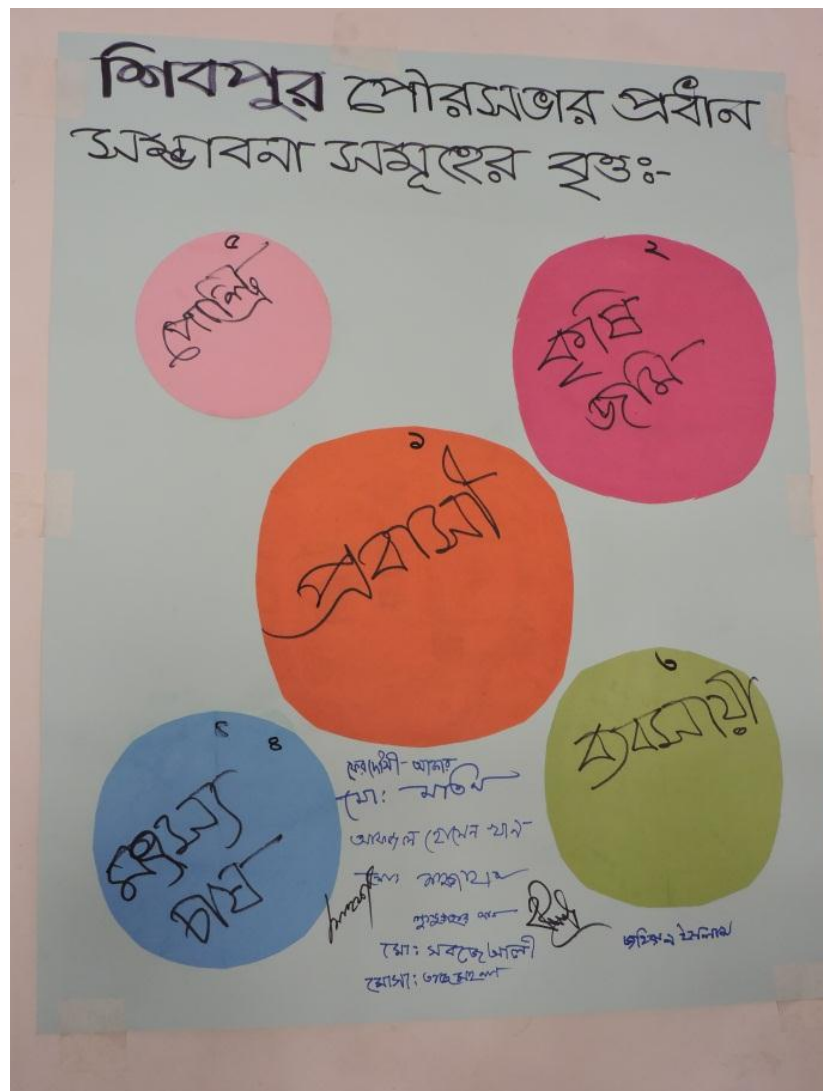 শিবপুর পৌরসভার প্রধান
সম্ভাবনা সমূহের বৃত্তঃ-
৫
পোল্ট্রি
২
কৃষি
জমি
১
প্রবাসী
৩
ব্যবসায়ী
৪
মৎস্য
চাষ
ফেরদৌসী আক্তার
মো: মতিন
হোসেন খান
মো: সবজে আলী
মোসা:
ইসলাম